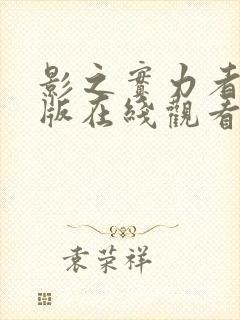 影之實力者
版在綫觀看
袁荣祥